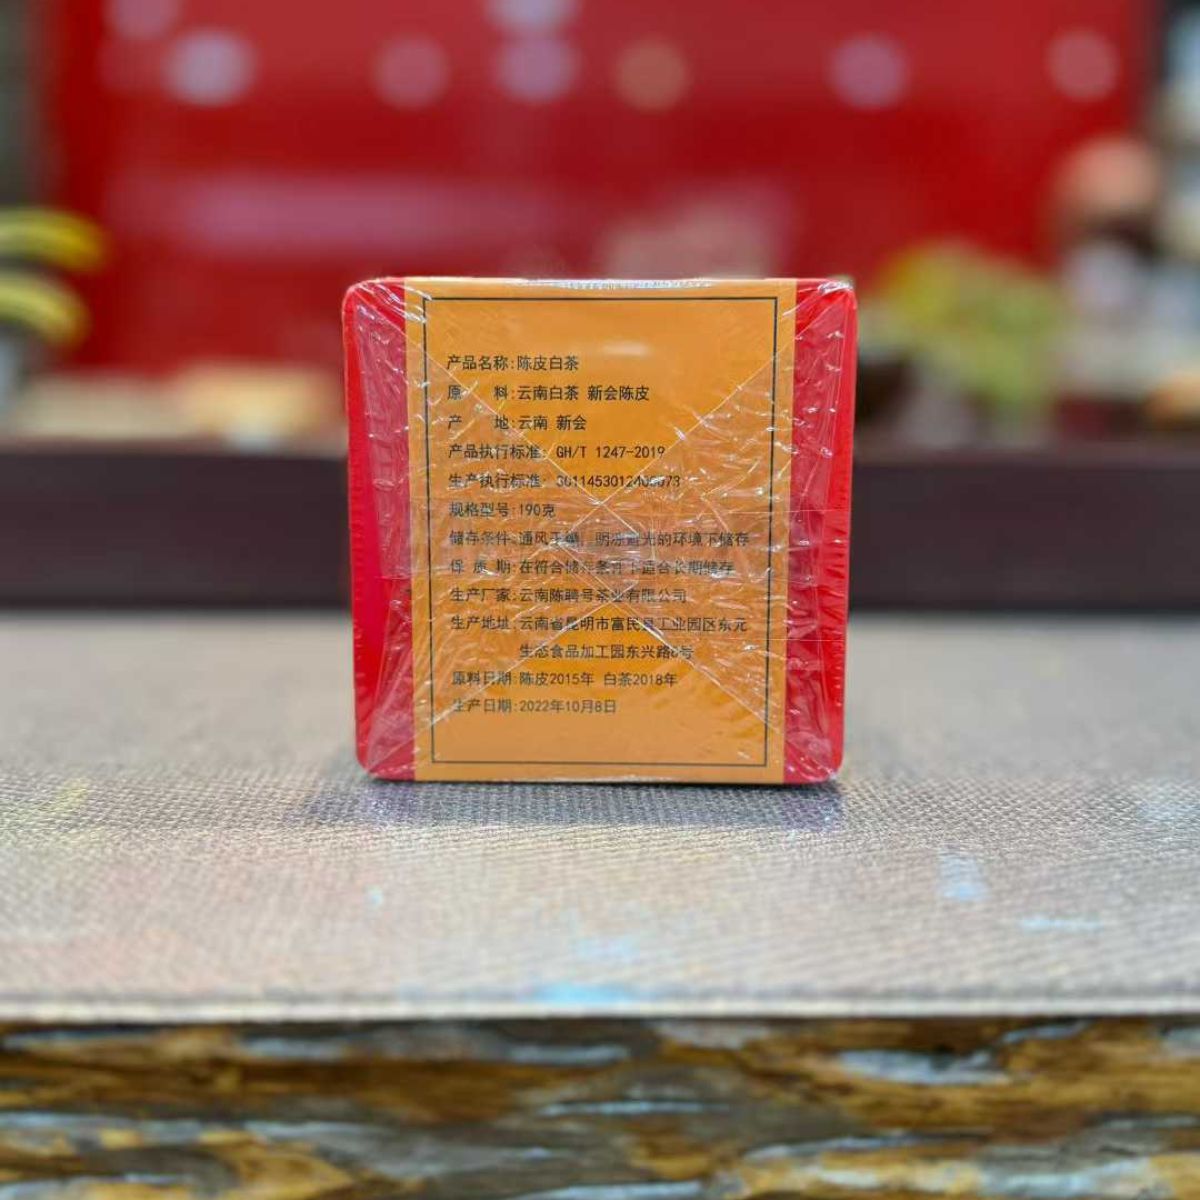 产品名称:陈皮白茶
原 料:云南白茶 新会陈皮
产 地:云南 新会
产品执行标准: GH/T 1247-2019
生产执行标准:
规格型号:190克
储存条件:通风干燥、阴凉避光的环境下储存
保 质 期:在符合储存条件下适合长期储存
生产厂家:云南陈聘号茶业有限公司
生产地址:云南省昆明市富民县工业园区东元
生态食品加工园东兴路6号
原料日期:陈皮2015年 白茶2018年
生产日期:2022年10月8日